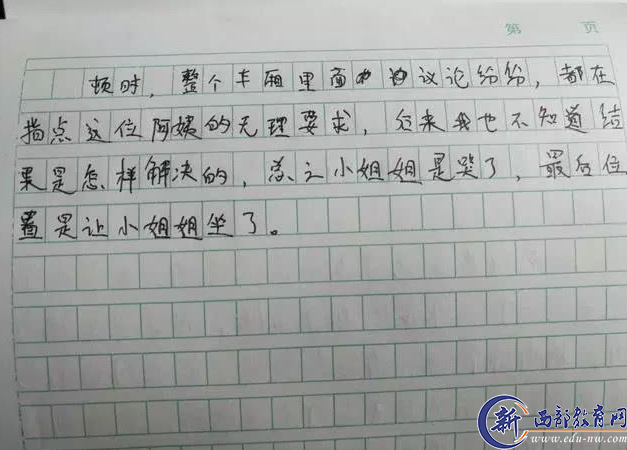 第 页
顿时，整个车厢里面议论纷纷，都在
指点这位阿姨的无理要求，后来我也不知道结
果是怎样解决的，总之小姐姐是哭了，最后位
置是让小姐姐坐了。
新 西部教育网
www.edu-nw.com